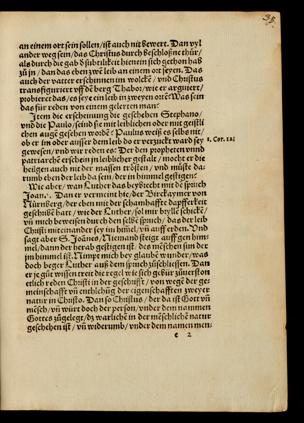 35
an einem ort sein sollen/ ist auch nit bewert. Dan vyl
ander weg sein/ das Christus durch beschloßne thür/
als durch die gab d subtilikeit hienein sich gethon hab
zů jn/ dan das eben zwē leib an einem ort seyen. Das
auch der vatter erschinnen im wolckē/ vnd Christus
transfiguriert vff dē berg Thabor/ wie er arguiert/
probieret das/ es seye ein leib in zweyen ortē: Was sein
das für reden von einem gelerten man:
Jtem die erscheinung die geschehen Stephano/
vnd die Paulo/ seind sie mit leiblichen oder mit geistli
chen augē gesehen wordē: Paulus weiß es selbs nit/
ob er im oder ausser dem leib do er verzuckt ward sey
1. Cor. 12.
gewesen/ vnd wir reden es: Der den propheten vnnd
patriarchē erschein jn leiblicher gestalt / mocht er die
heilgen auch nit der massen trösten / vnd müste da
rumb eben der leib da sein/ der in himmel gestigen:
Wie aber/ wan Luther das beybrecht mit dē spruch
Joan. Dan er vermeint hie/ der Birckaymer von
Nürnberg/ der eben mit der schamhafften dapfferkeit
geschribē hatt/ wie der Luther/ sol mir brylle schickē/
vn mich beweisen durch den selbē spruch/ das der leib
Christi miteinander sey im himel/ vn auff erden. Vnd
sagt aber S. Joānes/ Niemand steigt auff gen him-
mel/ dann der herab gestigen ist. des mēschen sun der
jm himmel ist. Nimpt mich bey glaubē wunder/ was
doch beger Luther auß dem spruch zůschliessen. Dan
er je gůt wissen treit die regel wie sich gebür zůuerston
etlich reden Christi in der geschrifft/ von wegē der ge-
meinschafft vn entlehnūg der eigenschafften zweyer
natur in Christo. Dan so Christus/ der da ist Gott vn
mēsch/ vn würt doch der person/ vnder dem nammen
Gottes zůgelegt/ dz warlichē in der mēschlichē natur
geschehen ist/ vn widerumb/ vnder dem namen men-
e 2